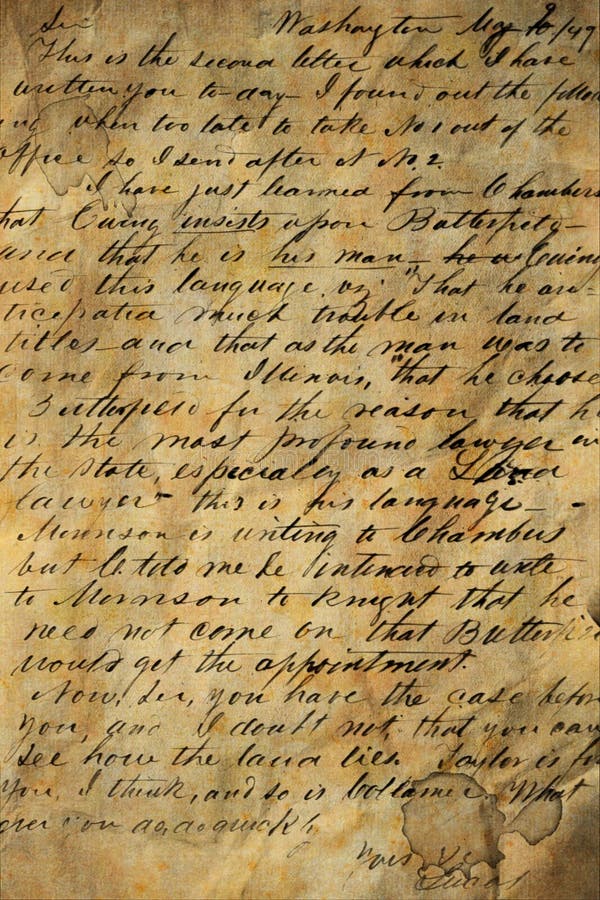 Sir Washington May 10/49
This is the second letter which I have
written you to-day - I found out the
ing when too late to take No 1 out of the
office so I send after it No. 2.
I have just learned from Chambers
hat Ewing insists upon Butterfield -
and that he is his man - he Ewing
used this language, viz; "That he an-
ticipated much trouble in land
titles - and that as the man was to
come from Illinois, "that he choose
Butterfield for the reason that h
is the most profound lawyer in
the State, especially as a Land
lawyer - this is his language -
Morrison is writing to Chambers
but C. told me he intended to write
to Morrison to Knight that he
need not come on that Butterfie
would get the appointment.
Now, Sir, you have the case befor
you, and I doubt not, that you can
see how the land lies. Taylor is for
you, I think, and so is Collamer. What
ever you do, do quick!
Yours
Lucas